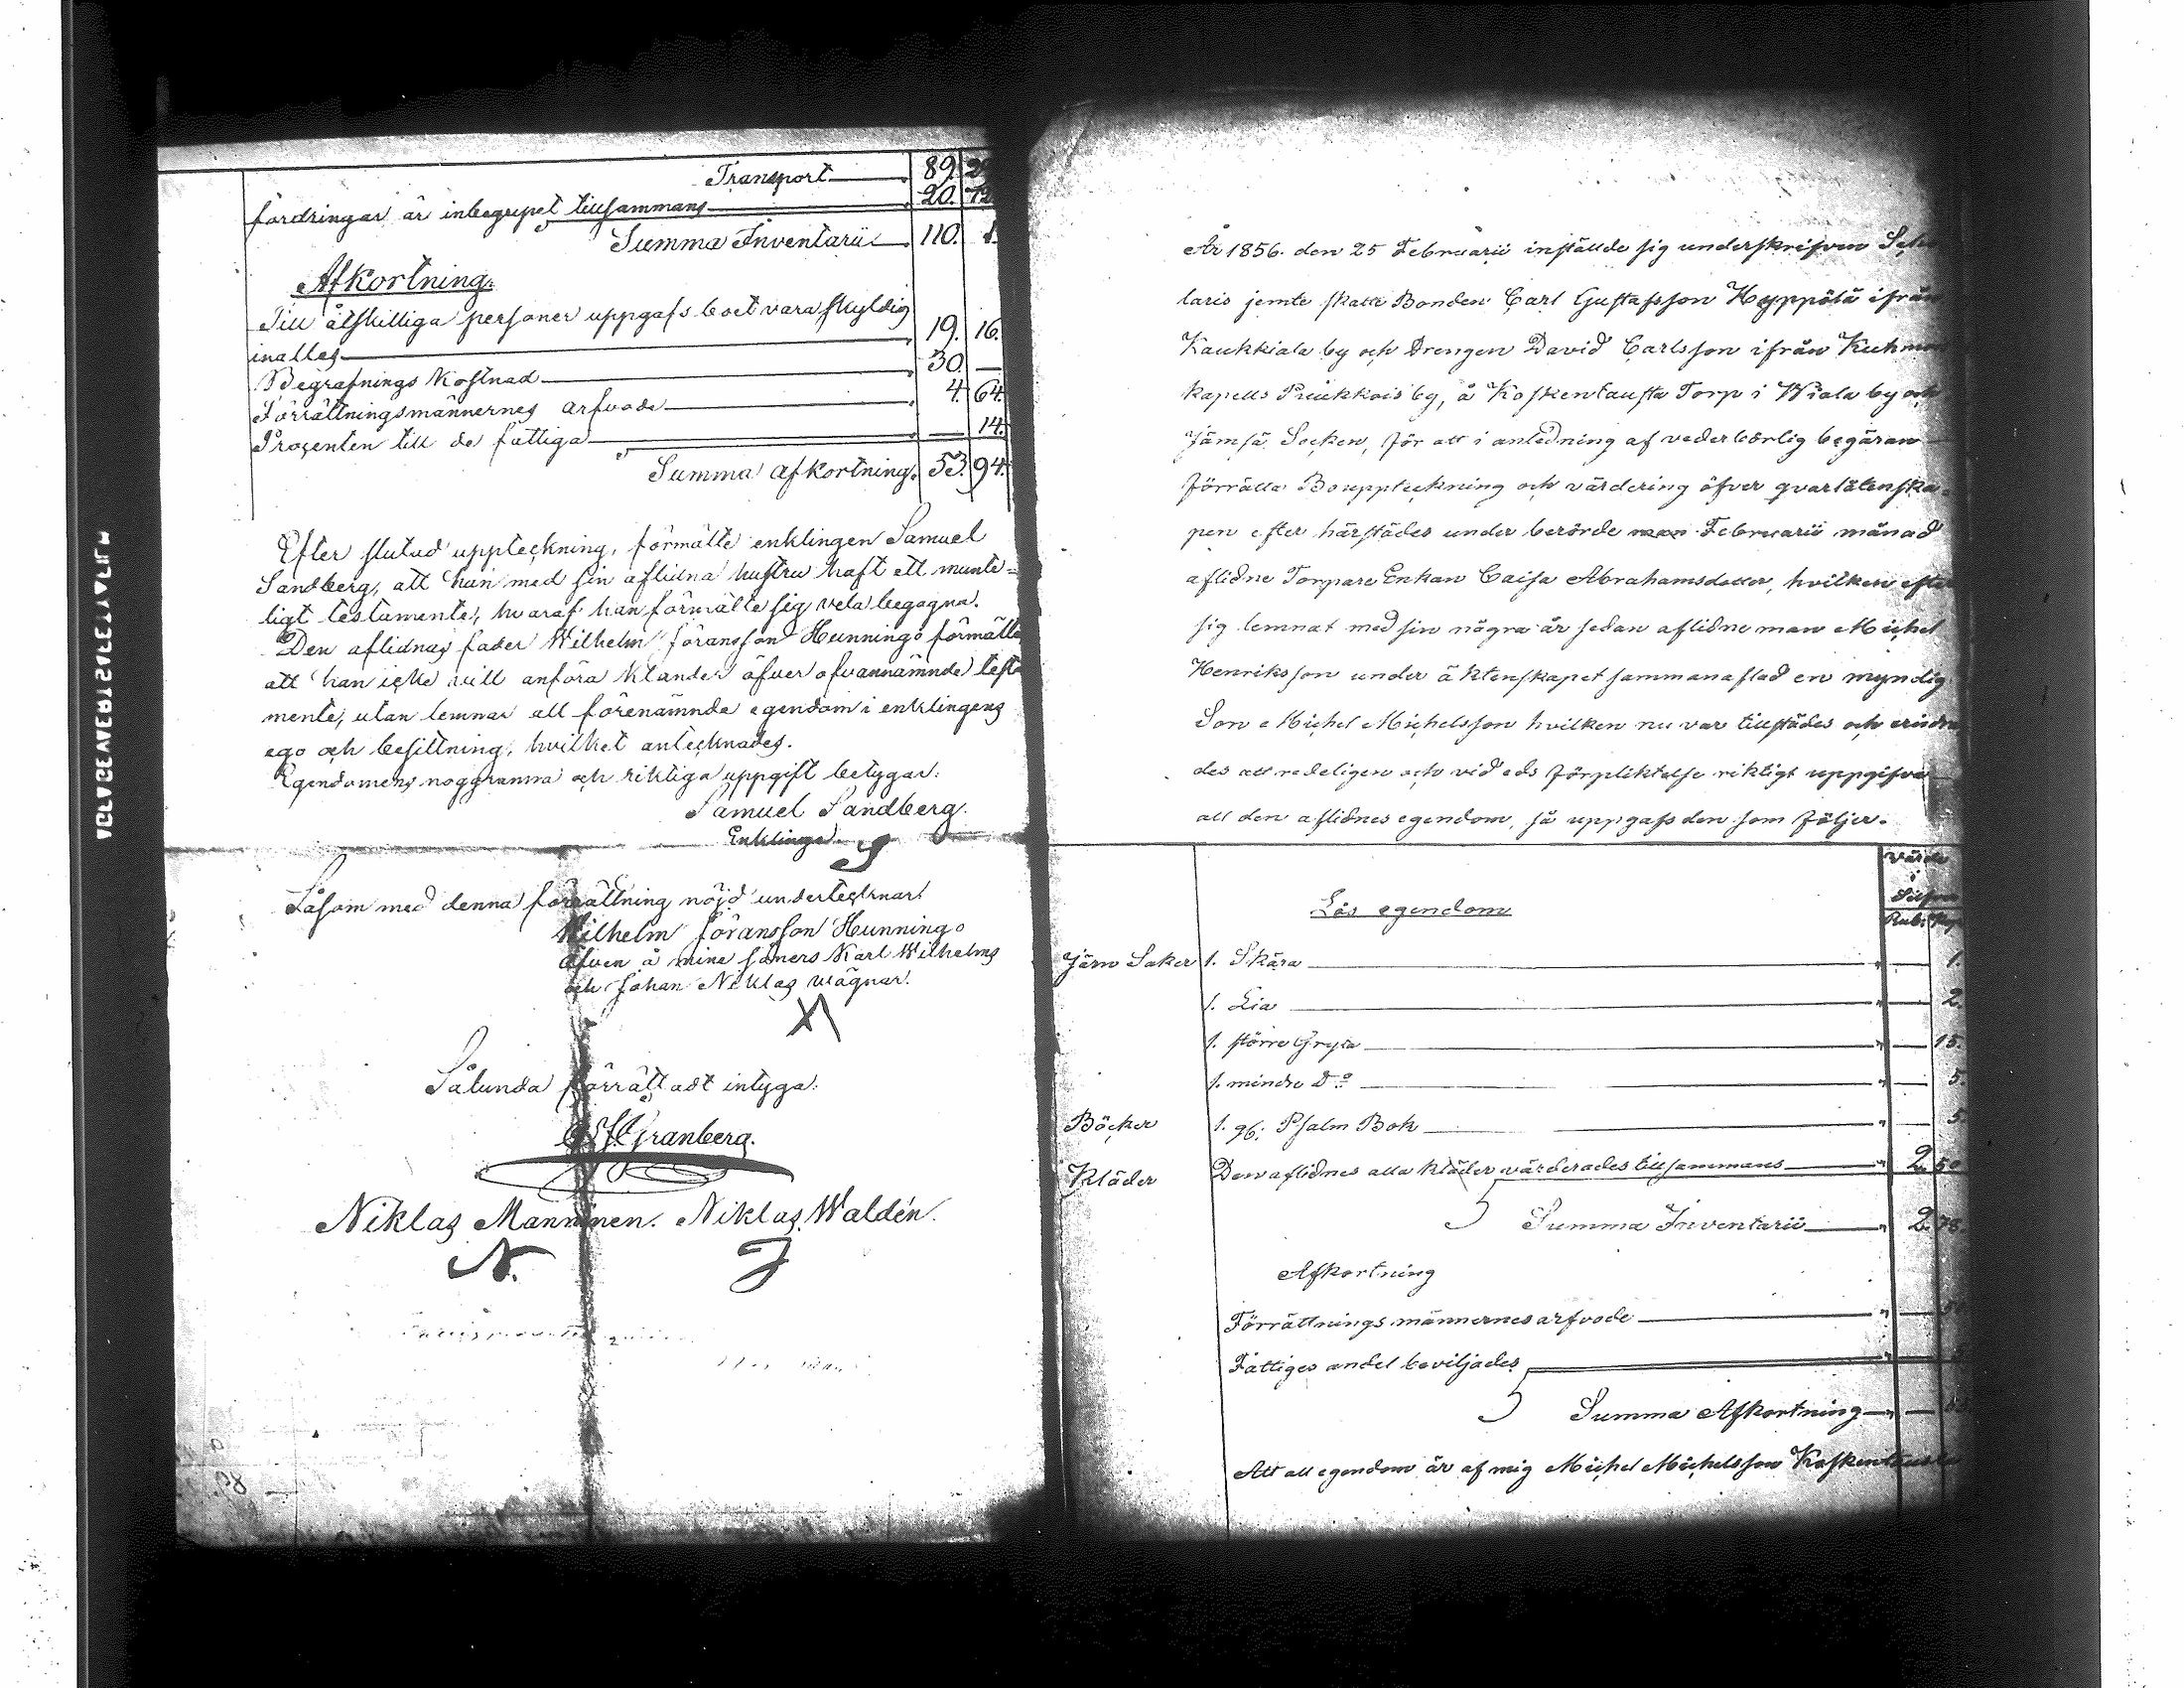 Transport 89.
fordringar är inbegripet tillsammans 20. 72
Summa Inventarii 110.
Afkortning.
Till åtskilliga personer uppgafs boet vara skyldig
inalles 19. 16.
Begrafnings Kostnad 30. —
Förrättningsmännernes arfvode 4. 64.
Procenten till de fattiga — 14.
Summa afkortning. 53. 94.
Efter slutad uppteckning, förmälte enklingen Samuel
Sandberg, att han med sin aflidna hustru haft ett munte=
ligt testamente, hvaraf han förmälte sig vela begagna.
Den aflidnas fader Wilhelm Göransson Hunningo förmälte
att han icke vill anföra klander öfver ofvannämnde testa
mente, utan lemnar all förenämnde egendom i enklingens
ego och besittning, hvilket antecknades.
Egendomens noggranna och riktiga uppgift betygar:
Samuel Sandberg.
Enklinge.
Såsom med denna förrättning nöjd undertecknar:
Wilhelm Göransson Hunningo
äfven å mine söners Karl Wilhelms
och Johan Niklas wägnar.
Sålunda förrättadt intyga:
Granberg.
Niklas Manninen. Niklas Waldén.
N. J
År 1856. den 25 Februarii inställde sig underskrifven Sek
laris jemte skatte Bonden Carl Gustafsson Hyppölä ifrån
Kaukkiala by och Drengen David Carlsson ifrån Kuhmo
kapells Puukkois by, å Koskentausta Torp i Wiala by och
Jämsä Socken, för att i anledning af vederbörlig begäran
förrätta Bouppteckning och värdering öfver qvarlåtenska-
pen efter härstädes under berörde Februarii månad
aflidne Torpare Enkan Caisa Abrahamsdotter, hvilken efter
sig lemnat med sin några år sedan aflidne man Michel
Henriksson under äktenskapet sammanaflad en myndig
Son Michel Michelsson hvilken nu var tillstädes och erindra
des att redeligen och vid eds förpliktelse riktigt uppgifva
all den aflidnes egendom, så uppgafs den som följer.
Värde
i
Silfver
Lös egendom Rub. Kop
Järn Saker 1. Skära — 1.
1. Lia — 2.
1. större Gryta — 15.
1. mindre Do — 5.
Böcker 1. gb: Psalm Bok — 5.
Kläder Den aflidnes alla kläder värderades tillsammans 2. 50
Summa Inventarii 2. 78.
Afkortning
Förrättnings männernes arfvode — 50
Fattiges andel beviljades
Summa Afkortning —
Att all egendom är af mig Michel Michelsson Koskentausta